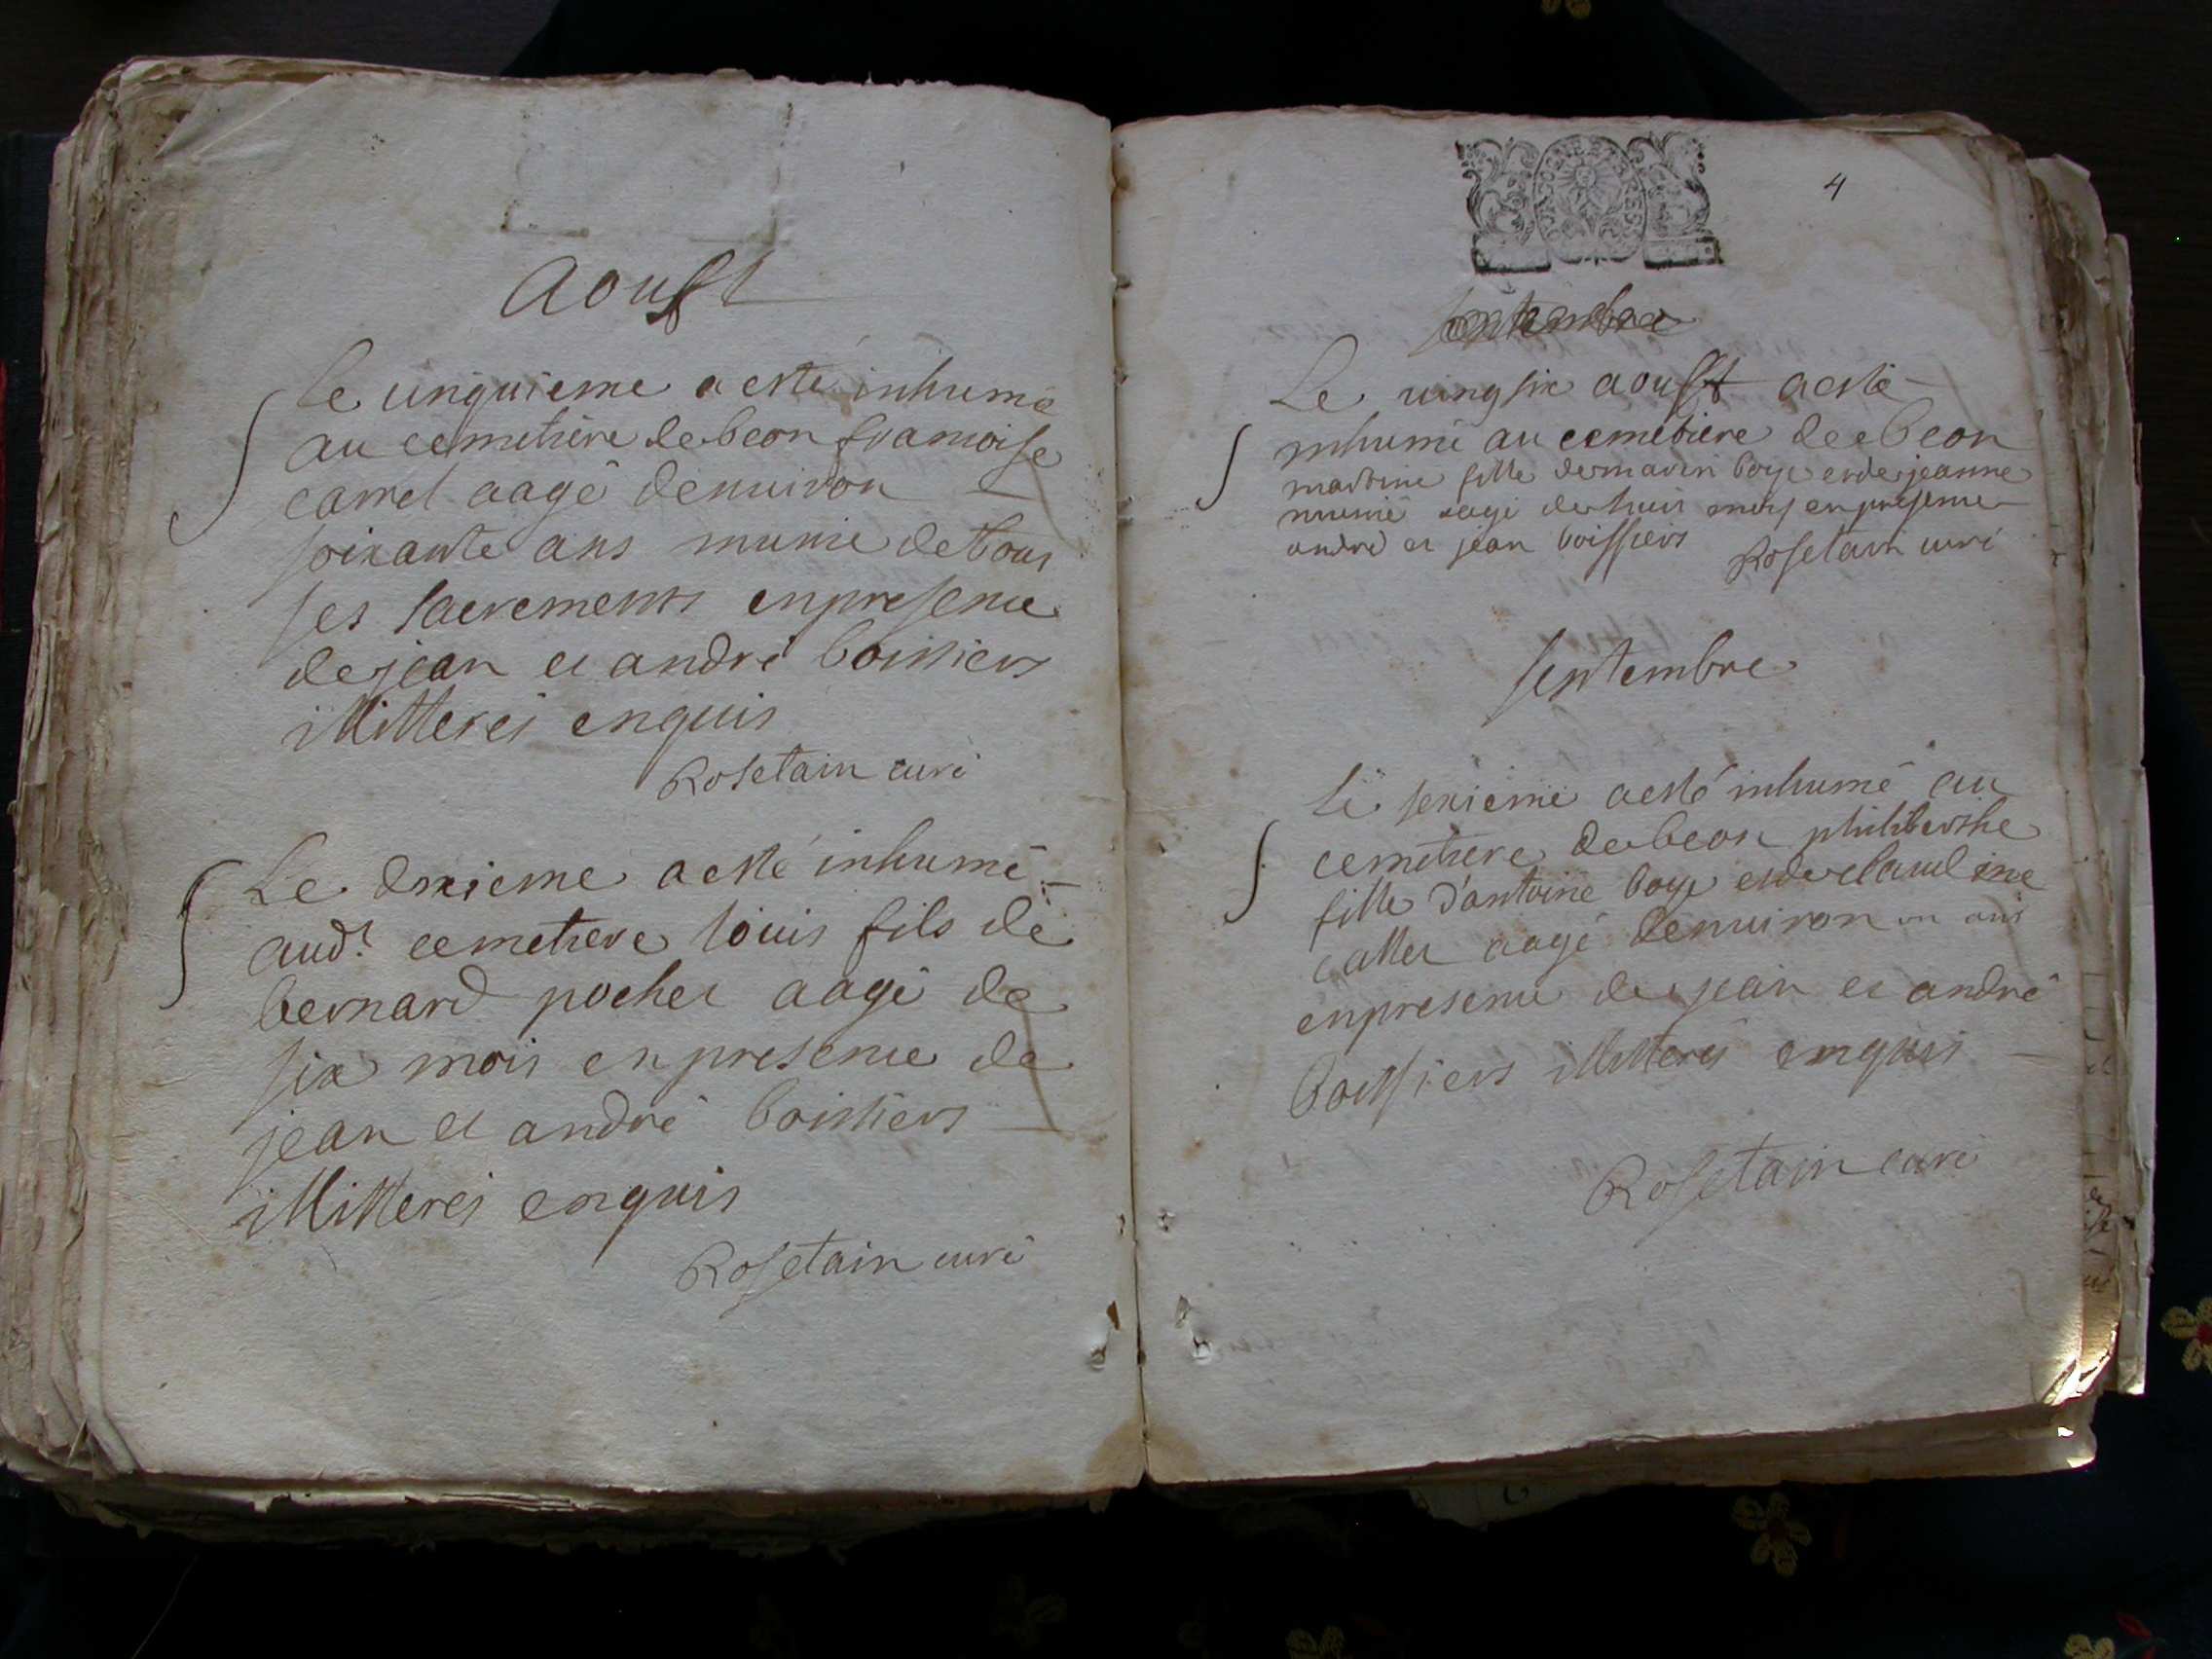 Aoust
Le cinquieme a esté inhumé
au cemetiere de beon francoise
carrel aagé denuiron
soixante ans munie de tous
ses sacrements en presence
de jean et andré boissiers
illitterés enquis
Rosetain curé
Le dixieme a esté inhumé
aud.t cemetiere louis fils de
bernard pochet aagé de
six mois en presence de
jean et andré boissiers
illitterés enquis
Rosetain curé
4
septembre
Le uingsix aoust a esté
inhumé au cemetiere de beon
martine fille de marin boye et de jeanne
aagé de huit moys en presence
andre et jean boissiers
Rosetain curé
septembre
Le sexieme a esté inhumé au
cemetiere de beon philiberthe
fille d'antoine boye et de claudine
callet aagé denuiron un ans
en presence de jean et andré
boissiers illitterés enquis
Rosetain curé